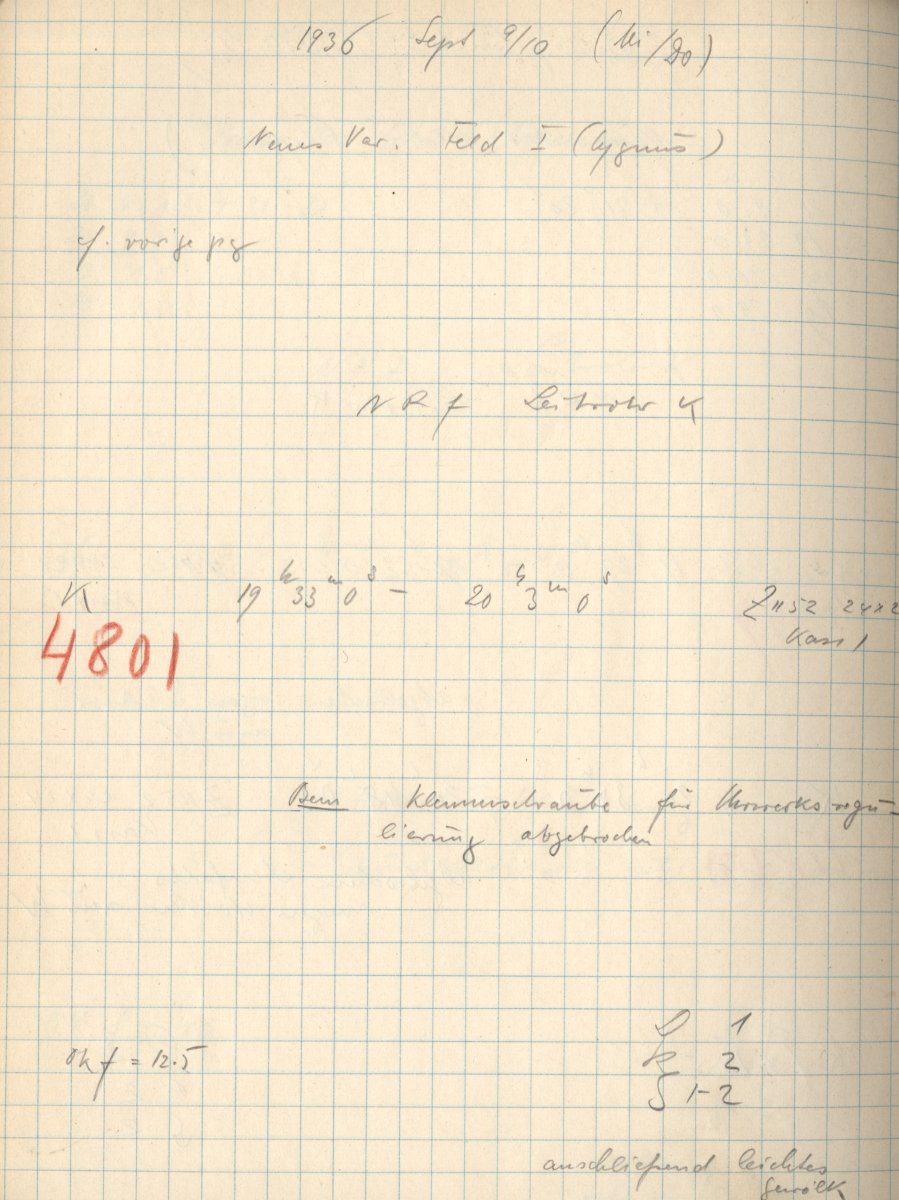 1936 Sept 9/10 (Mi/Do)
Neues Var. Feld I (Cygnus)
cf. vorige pg
N R f Leitrohr K
K 19h 33m 0s – 20h 3m 0s Z 1152 24x2
4801 Kass 1
Bem Klemmschraube für Uhrwerksregu-
lierung abgebrochen
L 1
Ok f = 12.5 R 2
S 1-2
anschließend leichtes
Gewölk